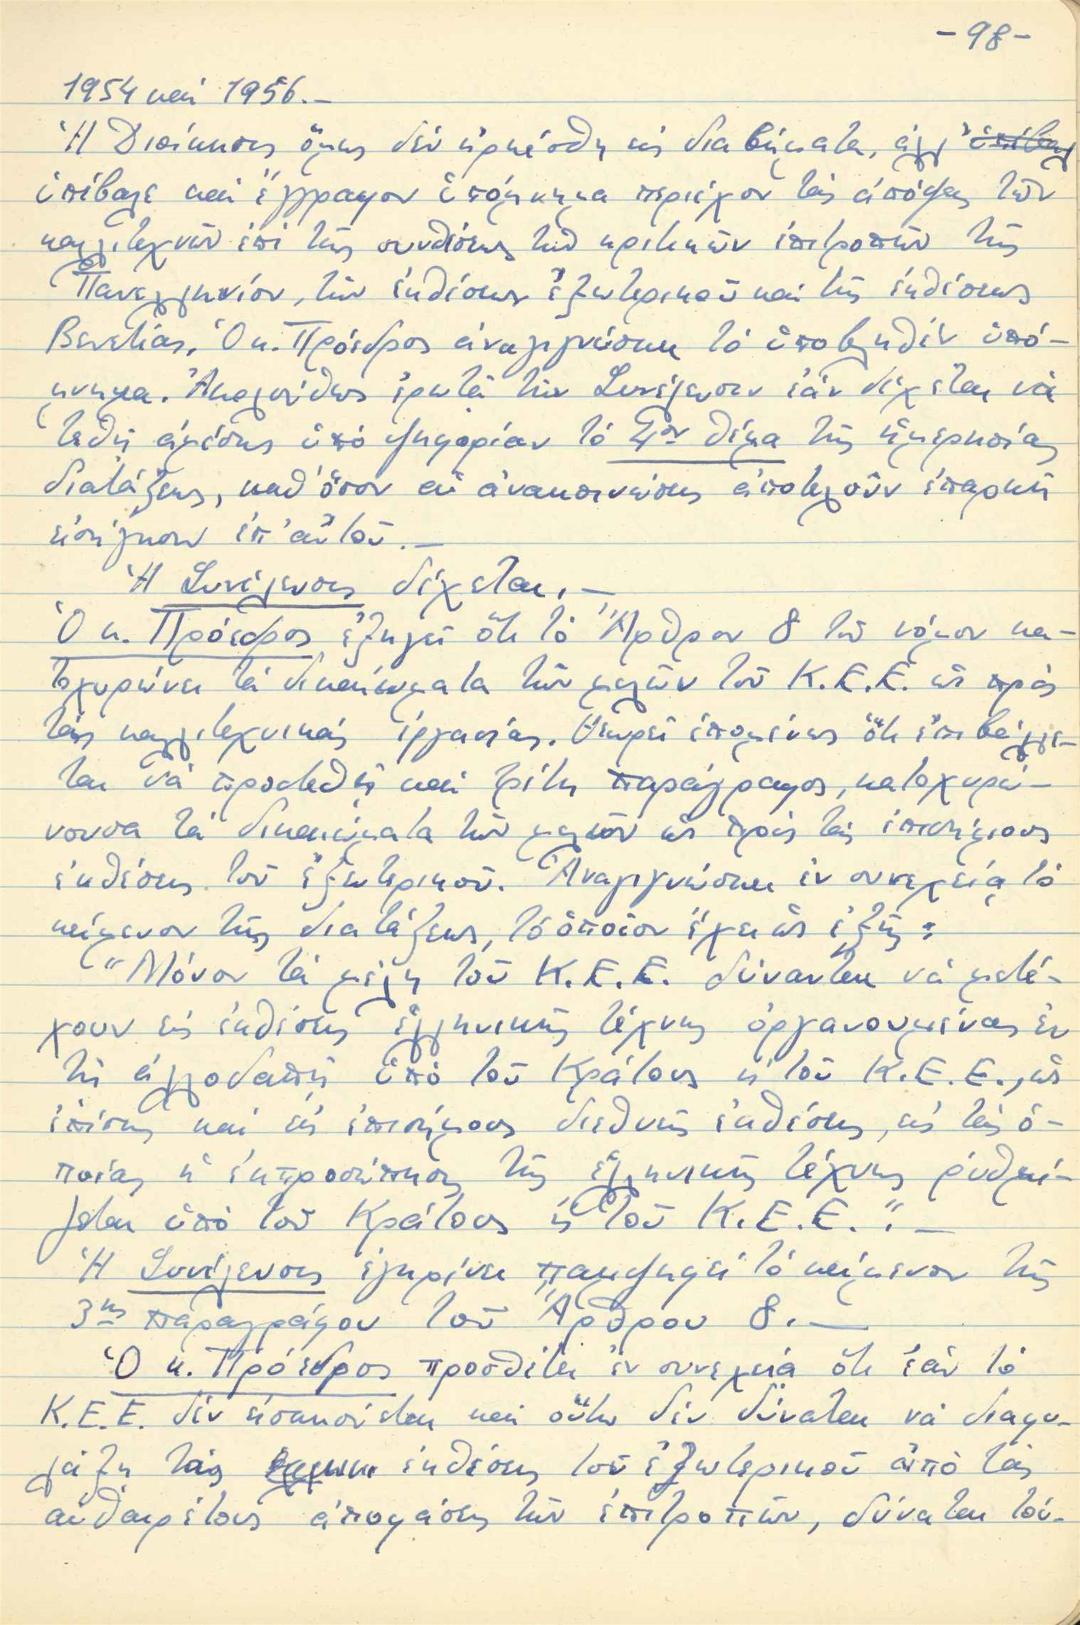 -98-
1954 καί 1956.-
Ἡ Διοίκησις ὅμως δέν ἠρκέσθη εἰς διαβήματα, ἀλλ'
ὑπέβαλε καί ἔγγραφον ὑπόμνημα περιέχον τάς ἀπόψεις τῶν
καλλιτεχνῶν ἐπί τῆς συνθέσεως τῶν κριτικῶν ἐπιτροπῶν τῆς
Πανελληνίου, τῶν ἐκθέσεων ἐξωτερικοῦ καί τῆς ἐκθέσεως
Βενετίας. Ὁ κ. Πρόεδρος ἀναγιγνώσκει τό ὑποβληθέν ὑπό-
μνημα. Ἀκολούθως ἐρωτᾶ τήν Συνέλευσιν ἐάν δέχεται νά
τεθῇ ἀμέσως ὑπό ψηφορίαν τό θέμα τῆς ἡμερησίας
διατάξεως, καθ' ὅσον αἱ ἀνακοινώσεις ἀποτελοῦν ἐπαρκῆ
εἰσήγησιν ἐπ' αὐτοῦ.-
Ἡ Συνέλευσις δέχεται.-
Ὁ κ. Πρόεδρος ἐξηγεῖ ὅτι τό Ἄρθρον 8 τοῦ νόμου κα-
τοχυρώνει τά δικαιώματα τῶν μελῶν τοῦ Κ.Ε.Ε. ὡς πρός
τάς καλλιτεχνικάς ἐργασίας. Θεωρεῖ ἑπομένως ὅτι ἐπιβάλλε-
ται νά προστεθῇ καί τρίτη παράγραφος, κατοχυρώ-
νουσα τά δικαιώματα τῶν μελῶν ὡς πρός τάς ἐπισήμους
ἐκθέσεις τοῦ ἐξωτερικοῦ. Ἀναγιγνώσκει ἐν συνεχείᾳ τό
κείμενον τῆς διατάξεως, τό ὁποῖον ἔχει ὡς ἑξῆς:
"Μόνον τά μέλη τοῦ Κ.Ε.Ε. δύνανται νά μετέ-
χουν εἰς ἐκθέσεις ἑλληνικῆς τέχνης ὀργανουμένας ἐν
τῇ ἀλλοδαπῇ ὑπό τοῦ Κράτους ἤ τοῦ Κ.Ε.Ε., ὡς
ἐπίσης καί εἰς ἐπισήμους διεθνεῖς ἐκθέσεις, εἰς τάς ὁ-
ποίας ἡ ἐκπροσώπησις τῆς ἑλληνικῆς τέχνης ρυθμί-
ζεται ὑπό τοῦ Κράτους ἤ τοῦ Κ.Ε.Ε.".-
Ἡ Συνέλευσις ἐγκρίνει παμψηφεί τό κείμενον τῆς
3ης παραγράφου τοῦ Ἄρθρου 8.-
Ὁ κ. Πρόεδρος προσθέτει ἐν συνεχείᾳ ὅτι ἐάν τό
Κ.Ε.Ε. δέν εἰσακούεται καί οὕτω δέν δύναται νά διαφυ-
λάξῃ τάς ἐκθέσεις τοῦ ἐξωτερικοῦ ἀπό τάς
αὐθαιρέτους ἀποφάσεις τῶν ἐπιτροπῶν, δύναται τοὐ-